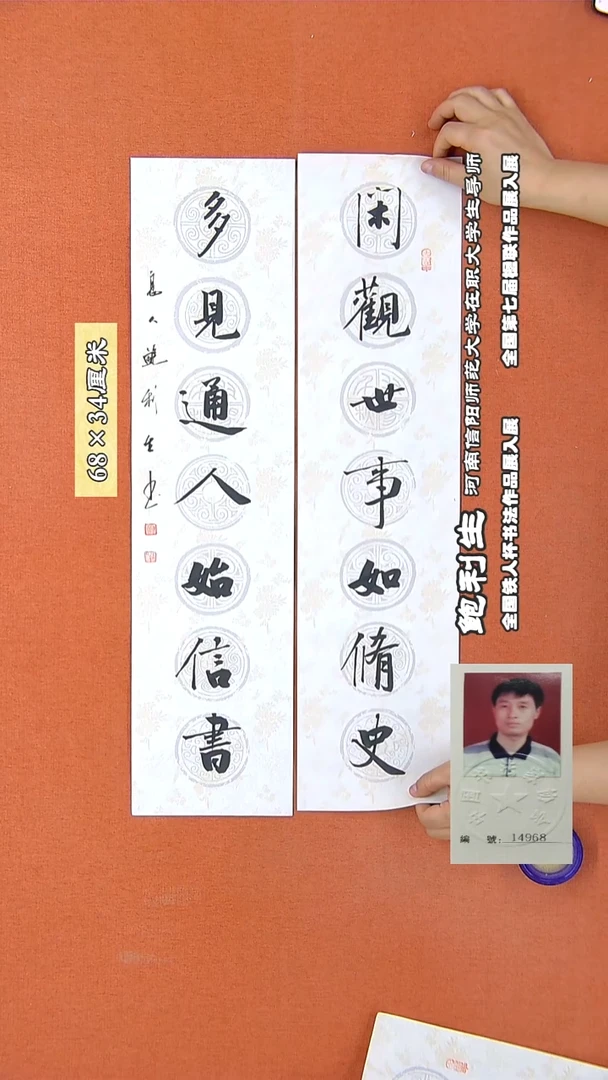 閑觀世事如脩史
多見通人始信書
息人鮑利生書
68×34厘米
鲍利生 河南信阳师范大学在职大学生导师
全国第七届楹联作品展入展
全国铁人杯书法作品展入展
編 號：14968